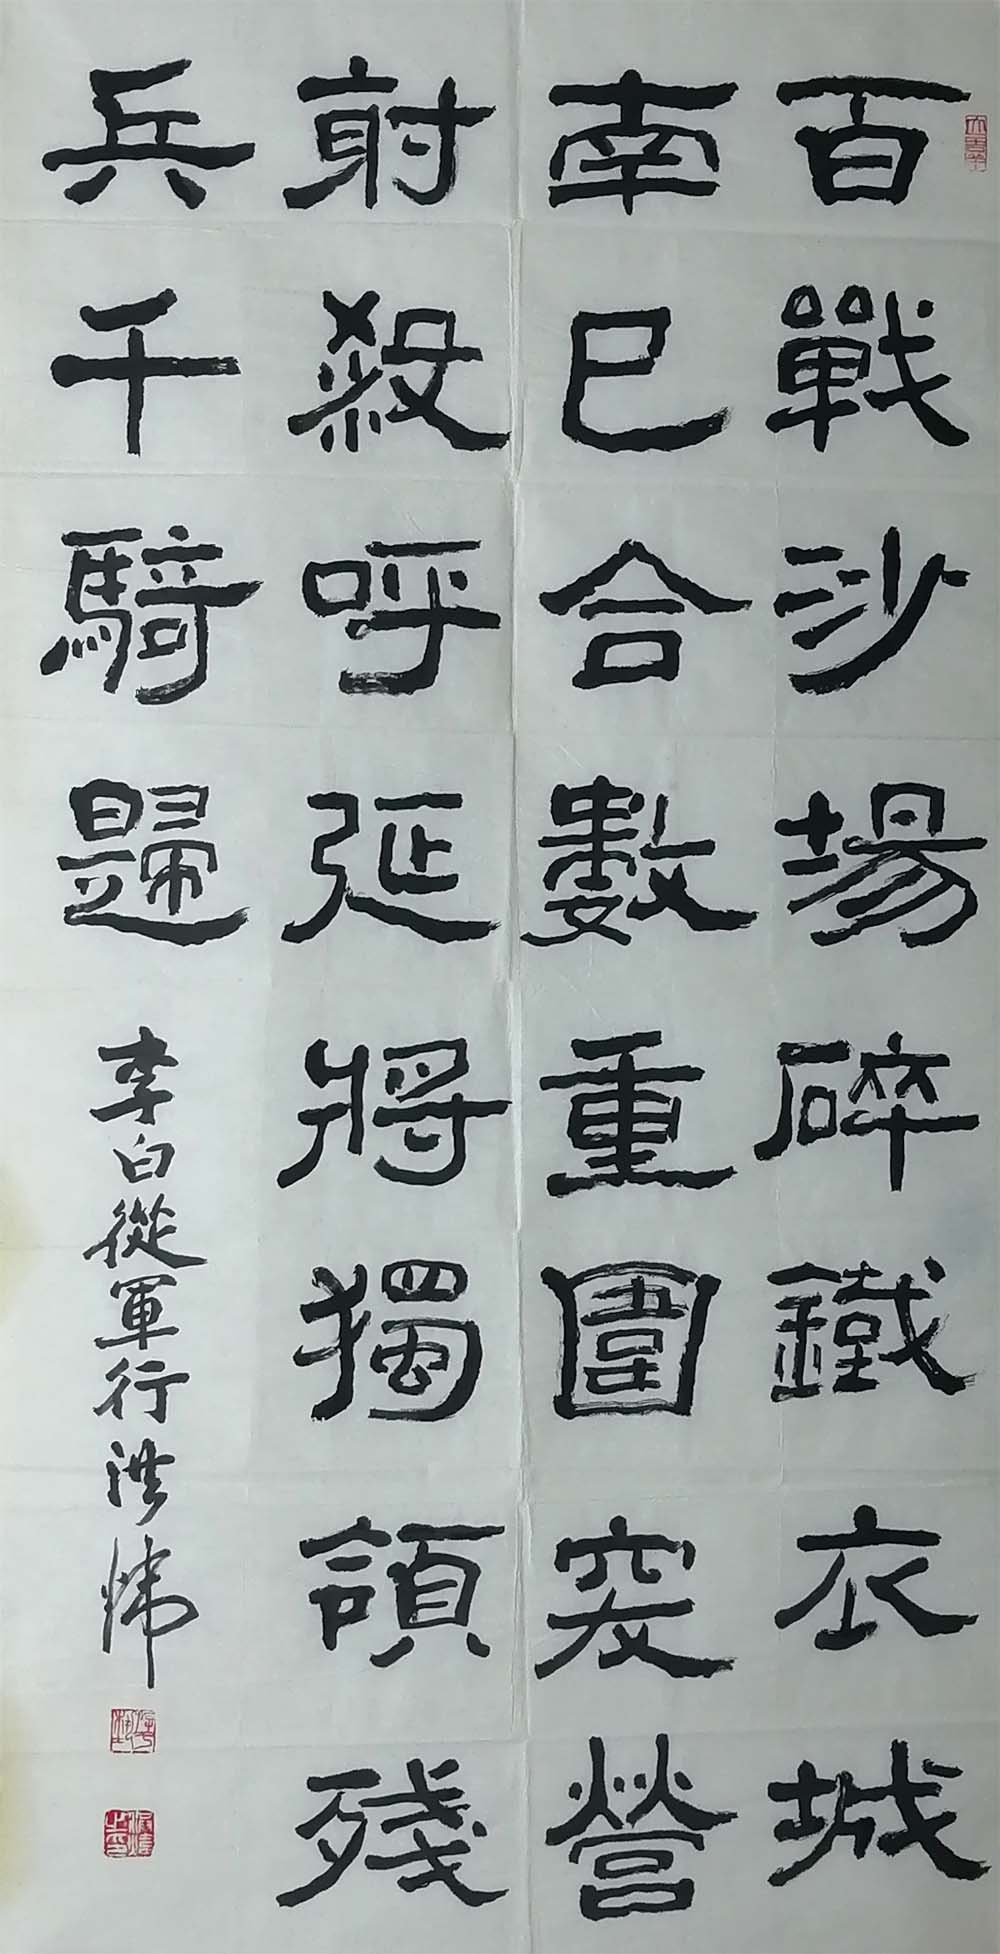 百戰沙場碎鐵衣城
南已合數重圍突營
射殺呼延將獨領殘
兵千騎歸
李白從軍行洪煒